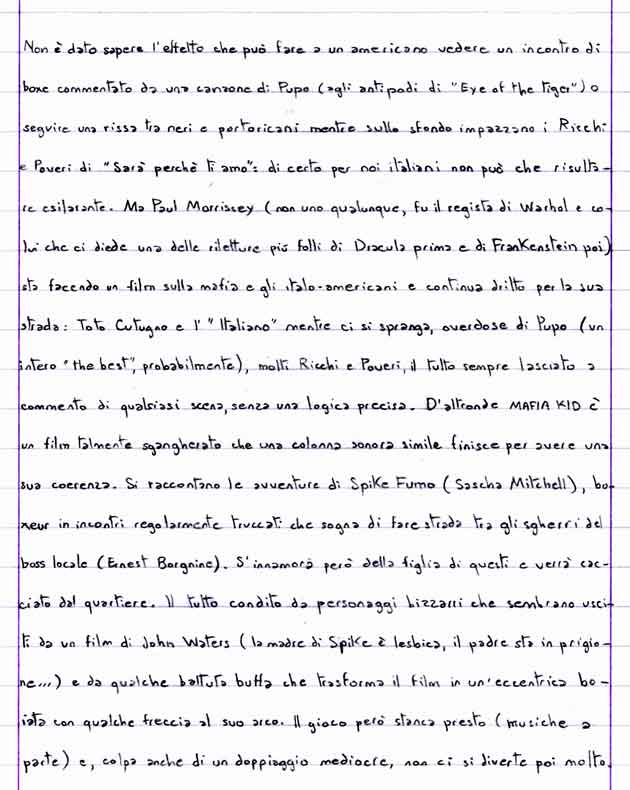 Non è dato sapere l'effetto che può fare a un americano vedere un incontro di
boxe commentato da una canzone di Pupo (agli antipodi di "Eye of the tiger") o
seguire una rissa tra neri e portoricani mentre sullo sfondo impazzano i Ricchi
e Poveri di "Sarà perchè ti amo": di certo per noi italiani non può che risulta-
re esilarante. Ma Paul Morrissey (non uno qualunque, fu il regista di Warhol e co-
lui che ci diede una delle riletture più folli di Dracula prima e di Frankenstein poi)
sta facendo un film sulla mafia e gli italo-americani e continua dritto per la sua
strada: Toto Cutugno e l'"Italiano" mentre ci si spranga, overdose di Pupo (un
intero "the best", probabilmente), molti Ricchi e Poveri, il tutto sempre lasciato a
commento di qualsiasi scena, senza una logica precisa. D'altronde MAFIA KID è
un film talmente sgangherato che una colonna sonora simile finisce per avere una
sua coerenza. Si raccontano le avventure di Spike Fumo (Sascha Mitchell), bo-
xeur in incontri regolarmente truccati che sogna di fare strada tra gli sgherri del
boss locale (Ernest Borgnine). S'innamora però della figlia di questi e verrà cac-
ciato dal quartiere. Il tutto condito da personaggi bizzarri che sembrano usci-
ti da un film di John Waters (la madre di Spike è lesbica, il padre sta in prigio-
ne...) e da qualche battuta buffa che trasforma il film in un'eccentrica bo-
iata con qualche freccia al suo arco. Il gioco però stanca presto (musiche a
parte) e, colpa anche di un doppiaggio mediocre, non ci si diverte poi molto.